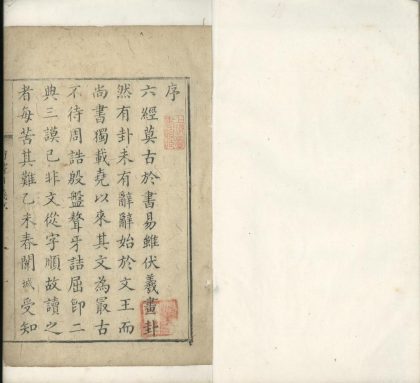 序
六經莫古於書易雖伏羲畫卦
然有卦未有辭辭始於文王而
尚書獨載堯以來其文為最古
不待周誥殷盤聱牙詰屈即二
典三謨已非文從字順故讀之
者每苦其難乙未春闈受知